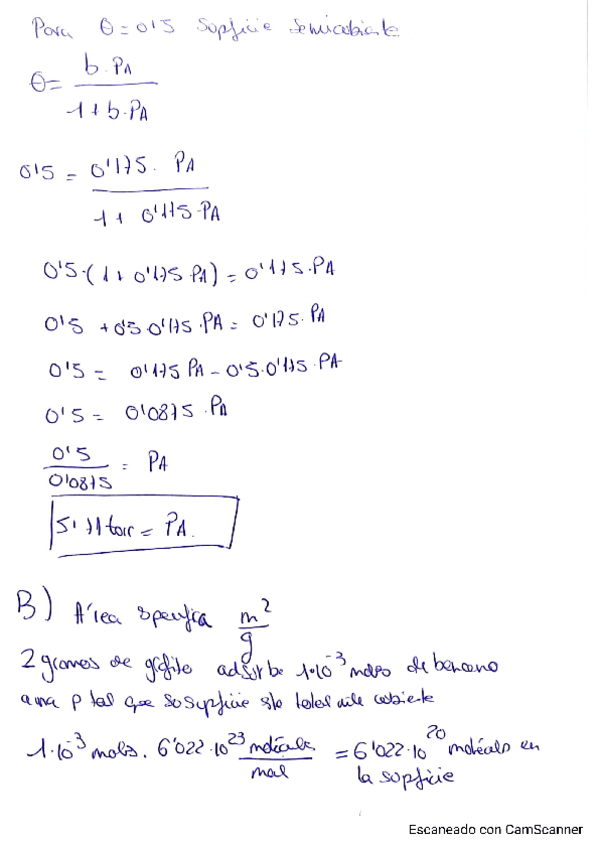 Para θ = 0'5 Supficie Semicubierta
θ = b·PA / 1 + b·PA
0'5 = 0'175 · PA / 1 + 0'175·PA
0'5·(1 + 0'175 PA) = 0'175·PA
0'5 + 0'5·0'175·PA = 0'175·PA
0'5 = 0'175 PA - 0'5·0'175·PA
0'5 = 0'0875·PA
0'5 / 0'0875 = PA
5'71 torr = PA.
B) Área specifica m² / g
2 gramos de gfito adsorbe 1·10⁻³ moles de benceno
a una p tal que so supficie sta totalmnte cubierta
1·10⁻³ mols. 6'022·10²³ moléculs / mol = 6'022·10²⁰ moléculs en
la supficie
Escaneado con CamScanner